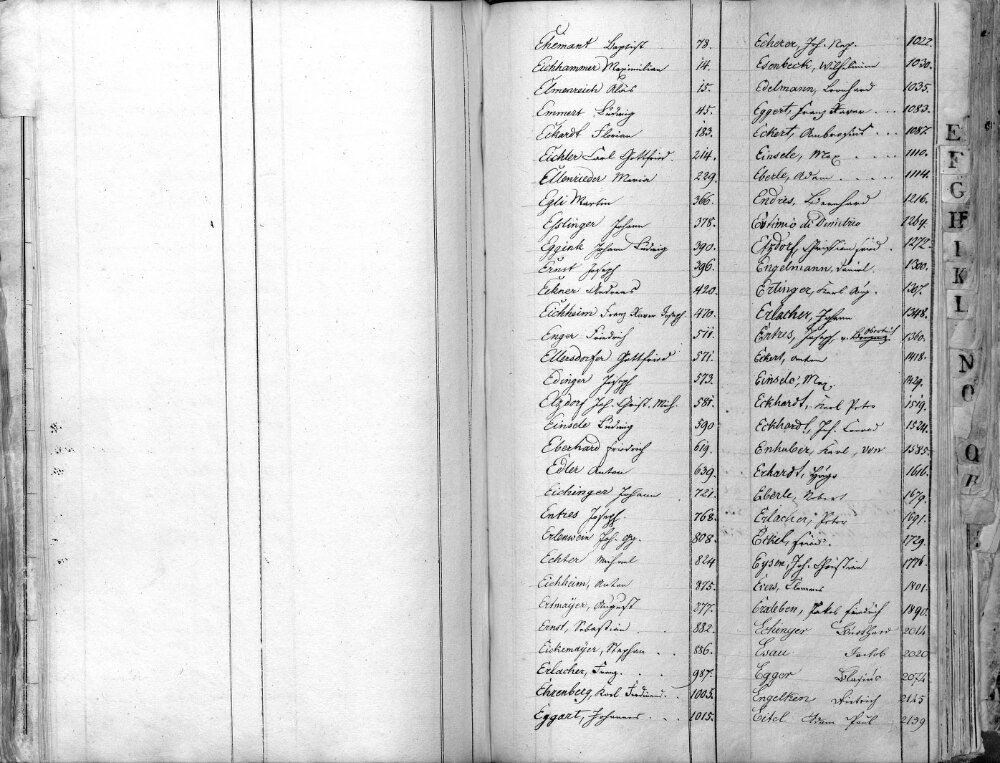 Ehemant Baptist 78.
Eichhammer Maximilian 14.
Elmenreich Alois 15.
Emmert Ludwig 45.
Eckardt Florian 183.
Eichler Carl Gottfried. 214.
Ellenrieder Maria 229.
Egli Martin 366.
Esslinger Johann 378.
Eggink Johann Ludwig 390.
Ernst Joseph 396.
Eckner Andreas 420.
Eichheim Franz Xaver Joseph 470.
Enger Friedrich 511.
Ellersdorfer Gottfried 571.
Edinger Joseph 573.
Elzdorf Joh. Christ. Mich. 581.
Einsele Ludwig 590
Eberhard Friedrich 619.
Edler Anton 639.
Eichinger Johann . 721.
Entres Joseph 768.
Erlenwein Joh. Gg. 808.
Echter Michael 824
Eichheim, Anton 875.
Ertmayer, August 877.
Ernst, Sebastian . . . 882.
Eickemayer, Stephan . . 886.
Erlacher, Franz. . . . 987.
Ehrenberg, Karl Ferdinand. . 1005.
Eggart, Johannes . . . 1015.
Echerer, Joh. Nep. 1022.
Esenbeck, Wilhelm 1030.
Edelmann, Bernhard 1035.
Eggert, Franz Xaver . . . 1083.
Eckert, Ambrosius . . . 1087.
Einsele, Max . . . . 1110.
Eberle, Adam . . . . . 1114.
Endres, Bernhard 1216.
Estimio di Dimitrio 1269.
Elzdorf, Christian Fried. . 1272.
Engelmann, Daniel. 1300.
Ertinger, Karl Aug. 1317.
Erlacher, Johann 1348.
Entres, Joseph v. 1360.
Eckert, Anton 1418.
Einsele, Max. 1429.
Eckhardt, Karl Peter 1519.
Eckhardt, Joh. Conrad 1524.
Enhuber, Karl, von 1585.
Erhardt, Hugo 1616.
Eberle, Robert 1679.
Erlacher, Peter 1691.
Eckel, Fried. 1729.
Eysen, Joh. Christian 1776.
Clemens 1801.
Erxleben, Jakob Friedrich 1890.
Balthasar 2014
Esau Jacob 2020
Egger Blasius 2074
Engelken Dietrich 2145
Eitel Adam Paul 2139
E
F
G
H
I K
L
N
O
Q
R